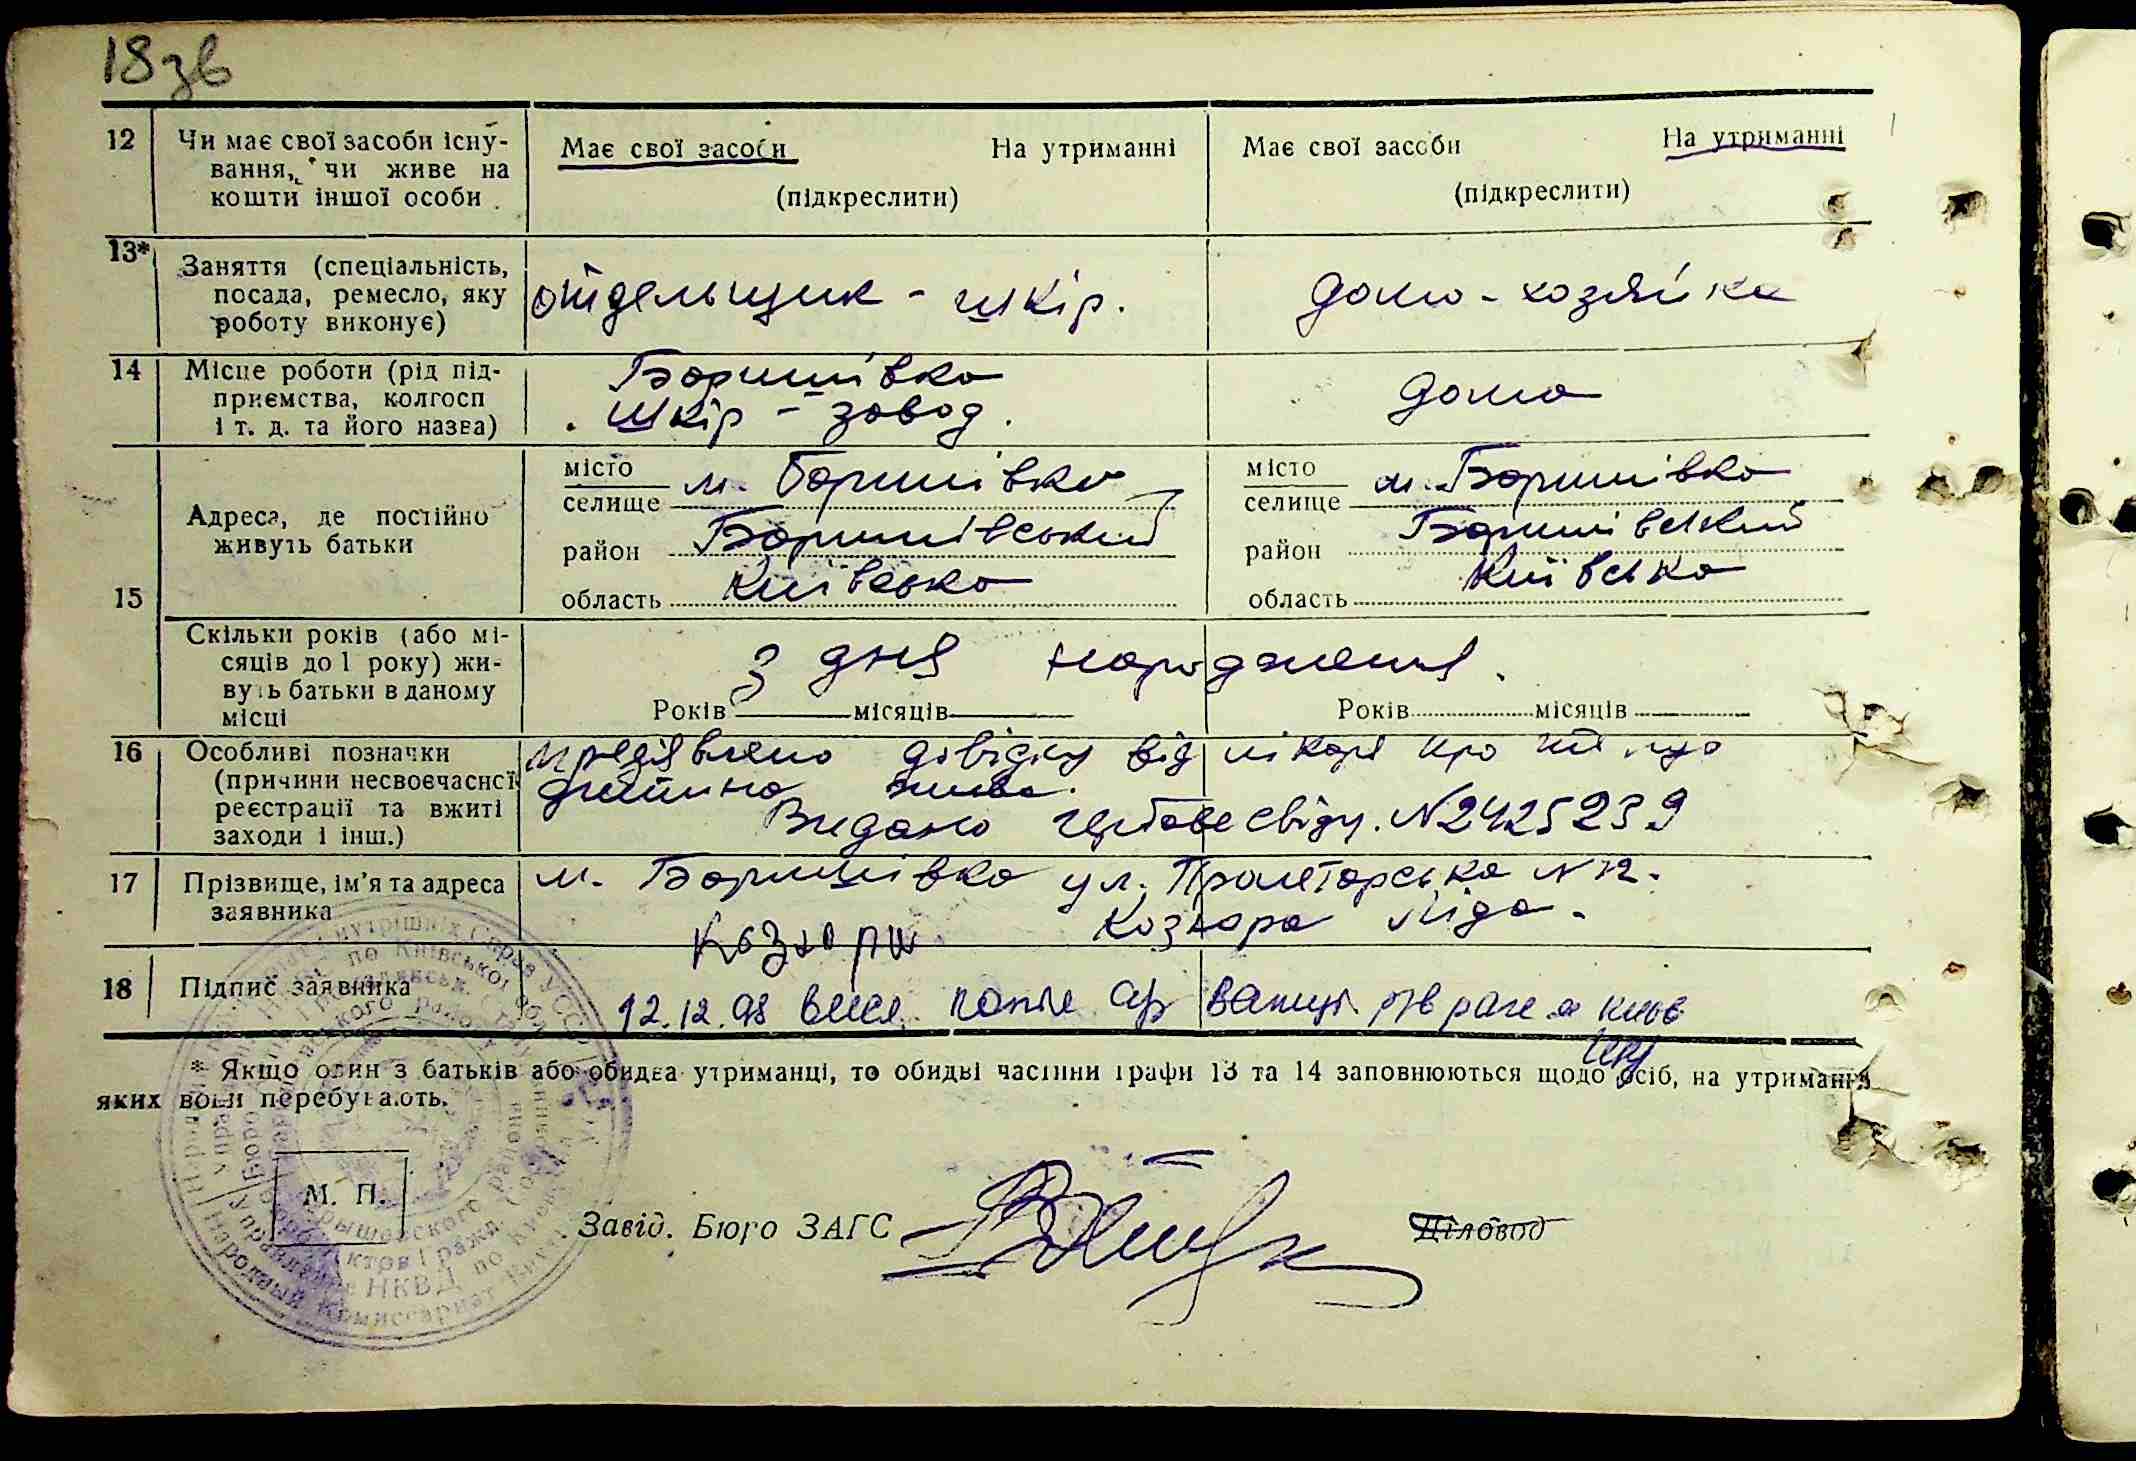 18 зв
12 Чи має свої засоби існу-
вання, чи живе на
кошти іншої особи
Має свої засоби На утриманні
(підкреслити)
Має свої засоби На утриманні
(підкреслити)
13* Заняття (спеціальність,
посада, ремесло, яку
роботу виконує)
отдельщик - шкір.
домо-хозяйка
14 Місце роботи (рід під-
приємства, колгосп
і т. д. та його назва)
Боришівка
шкір - завод.
дома
15 Адреса, де постійно
живуть батьки
місто
селище м. Боришівка
район Боришівський
область Київська
місто
селище м. Боришівка
район Боришівський
область Київська
Скільки років (або мі-
сяців до 1 року) жи-
вуть батьки в даному
місці
з дня народження.
Років місяців
Років місяців
16 Особливі позначки
(причини несвоєчасної
реєстрації та вжиті
заходи і інш.)
предявлено довідку від лікаря про те що
дитина жива.
Видано гербове свідц. N2425239
17 Прізвище, ім'я та адреса
заявника
м. Боришівка ул. Пролетарська N 12.
Козюра Ліда.
18 Підпис заявника
Козюра
12.12.98
* Якщо один з батьків або обидва утриманці, то обидві частини графи 13 та 14 заповнюються щодо осіб, на утриманні
яких вони перебувають.
М. П.
Завід. Бюро ЗАГС
Діловод